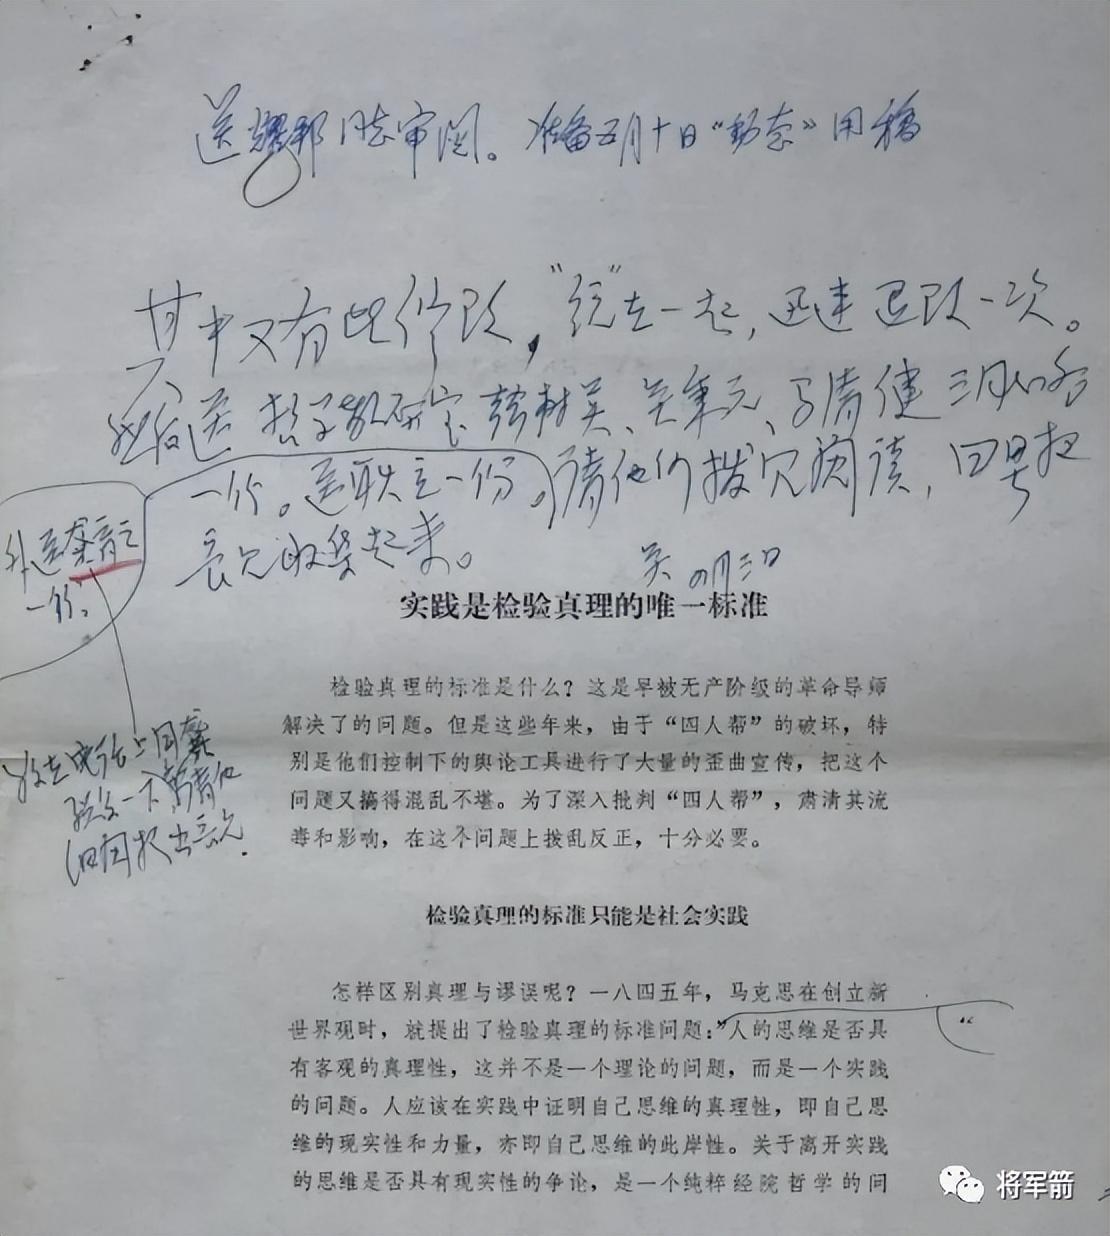 送耀邦同志审阅。准备五月十日“动态》用稿
其中又有些修改，“统”在一起，迅速退改一次。
然后送哲学教研室韩树英、吴秉元、马清健三同志各
一份。送联立一份。请他们拨冗阅读，四号把
意见收集起来。
吴 四月三日
外送龚育之
一份。
实践是检验真理的唯一标准
检验真理的标准是什么？这是早被无产阶级的革命导师
解决了的问题。但是这些年来，由于“四人帮”的破坏，特
别是他们控制下的舆论工具进行了大量的歪曲宣传，把这个
问题又搞得混乱不堪。为了深入批判“四人帮”，肃清其流
毒和影响，在这个问题上拨乱反正，十分必要。
电话上同龚
联系一下，请他
提出意见.
检验真理的标准只能是社会实践
怎样区别真理与谬误呢？一八四五年，马克思在创立新
世界观时，就提出了检验真理的标准问题：”人的思维是否具
“
有客观的真理性，这并不是一个理论的问题，而是一个实践
的问题。人应该在实践中证明自己思维的真理性，即自己思
维的现实性和力量，亦即自己思维的此岸性。关于离开实践
的思维是否具有现实性的争论，是一个纯粹经院哲学的问
将军箭